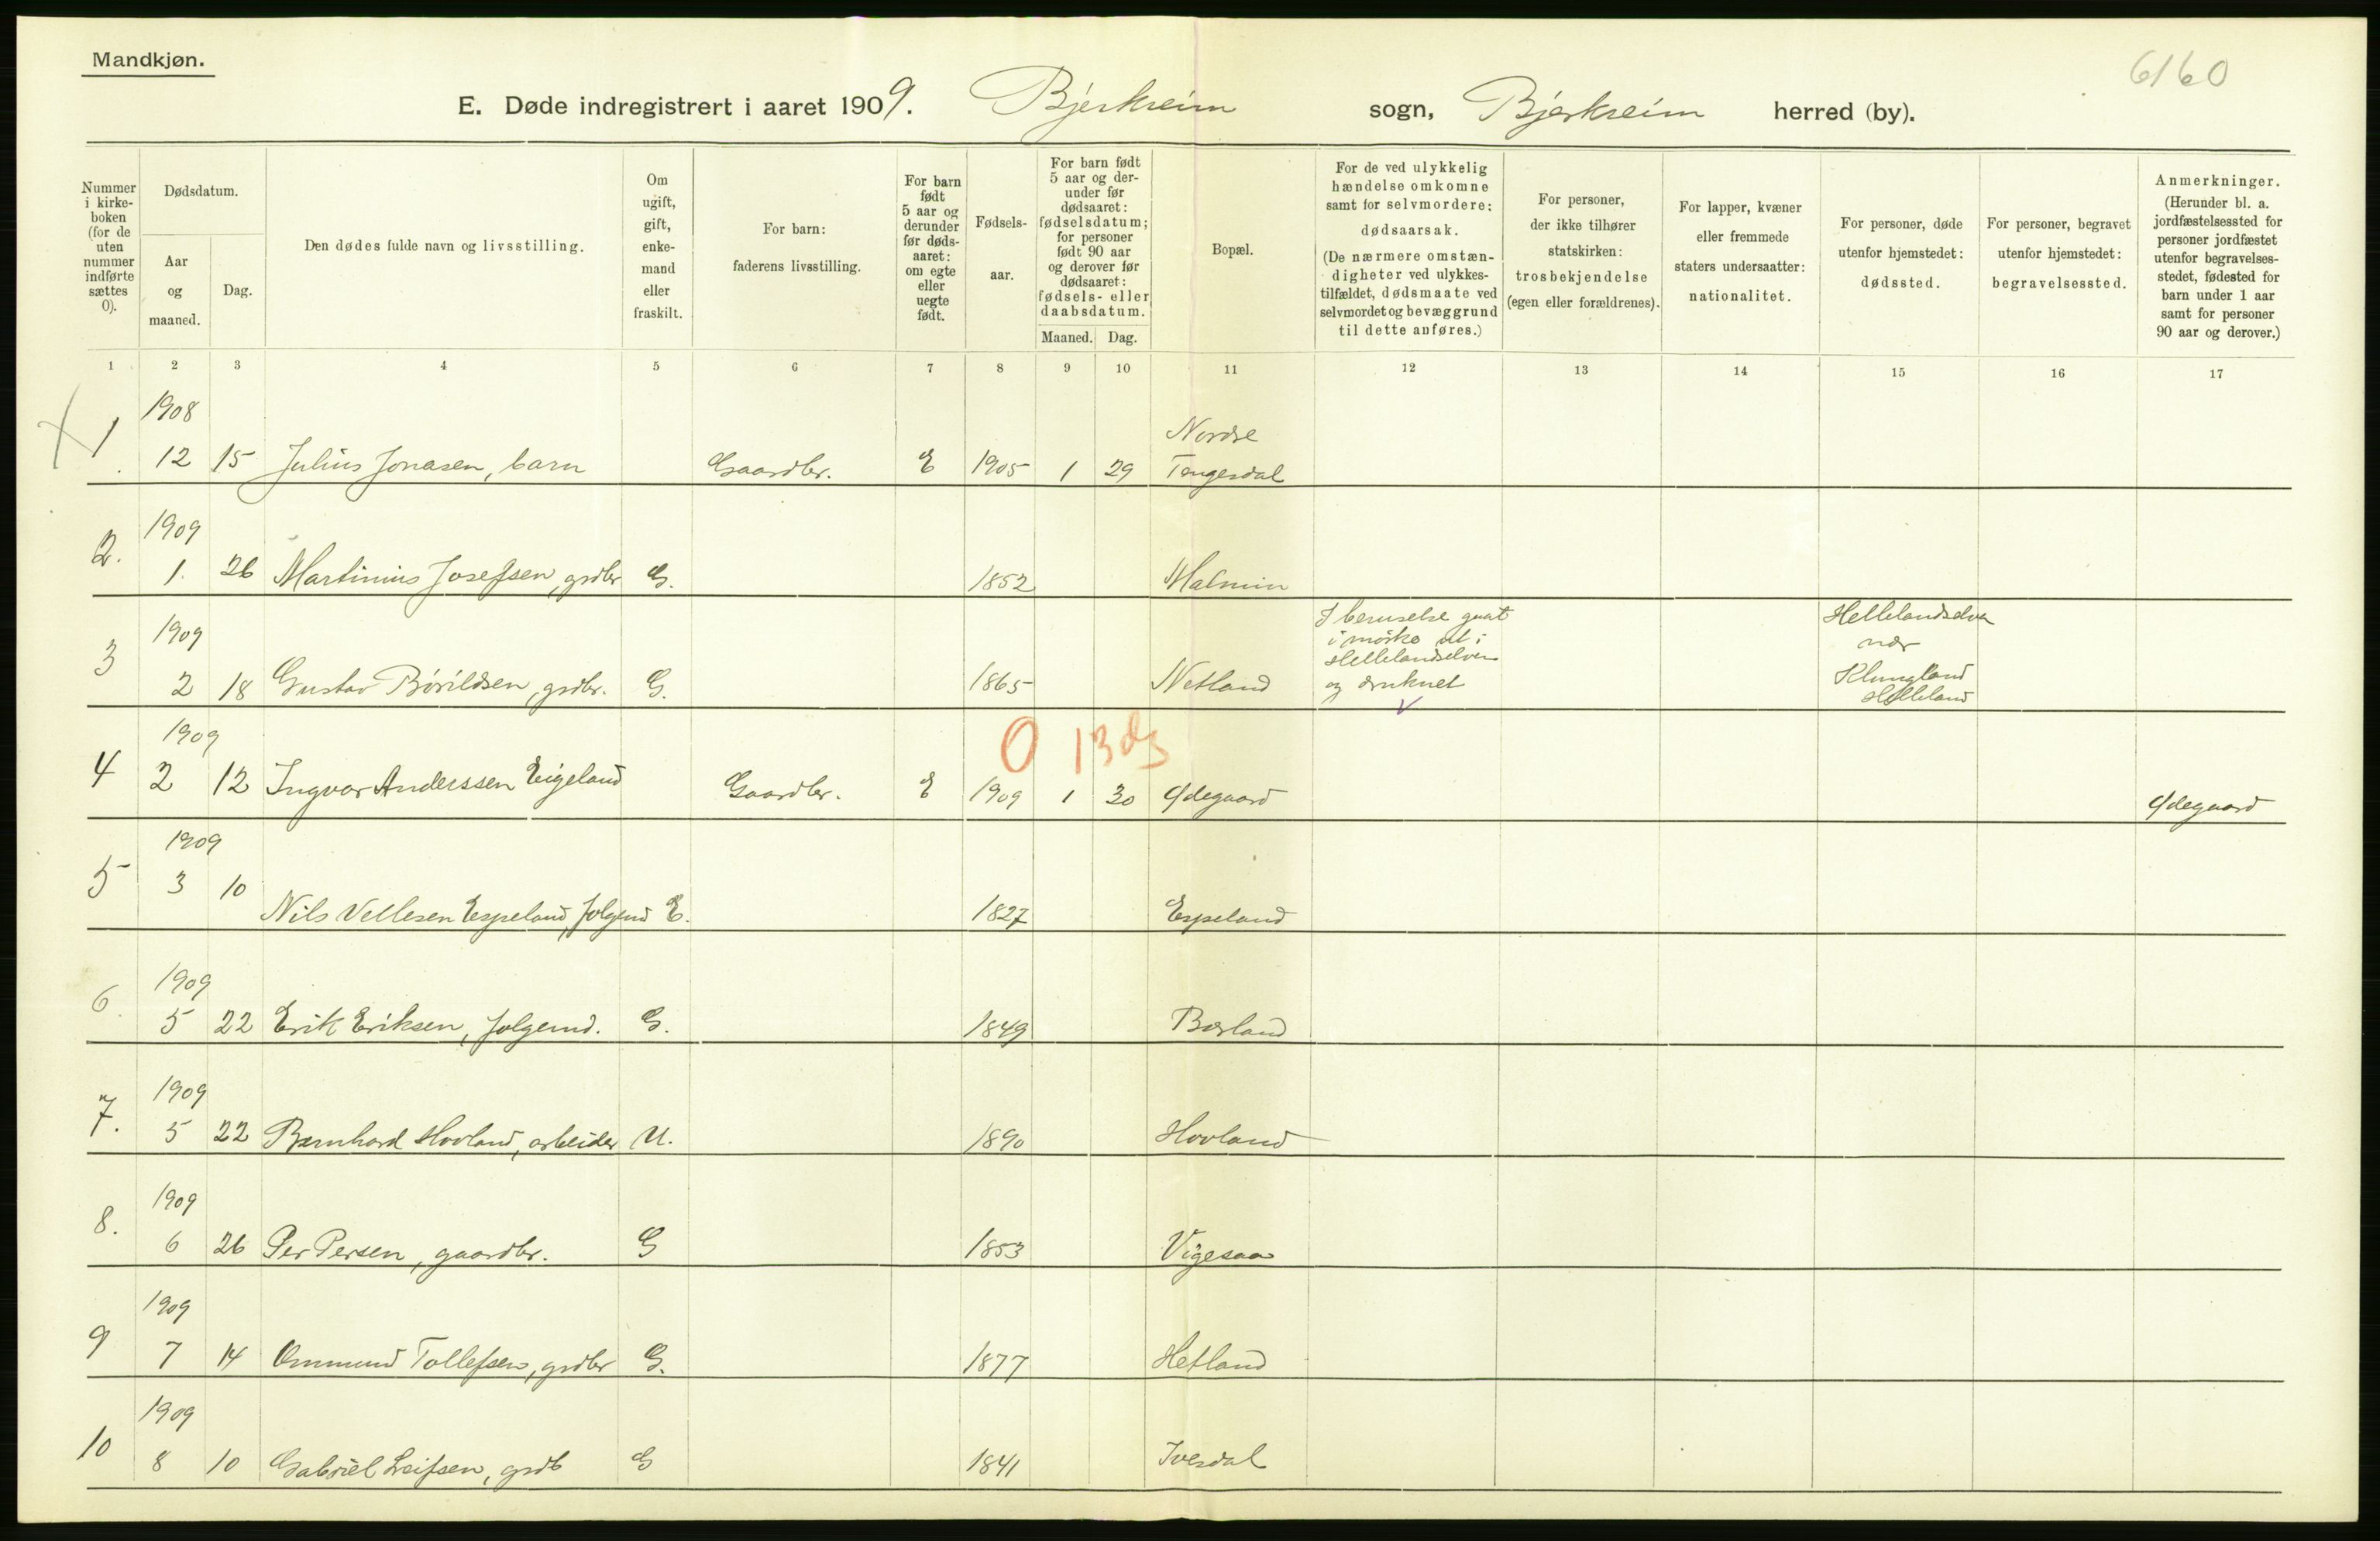 Mandkjøn.
6160
E. Døde indregistrert i aaret 1909. Bjerkreim sogn, Bjerkreim herred (by).
Nummer i kirke-boken (for de uten nummer indførte sættes 0).
Dødsdatum.
Aar og maaned.
Dag.
Den dødes fulde navn og livsstilling.
Om ugift, gift, enke-mand eller fraskilt.
For barn: faderens livsstilling.
For barn født 5 aar og derunder før døds-aaret: om egte eller uegte født.
Fødsels-aar.
For barn født 5 aar og der-under før dødsaaret: fødselsdatum; for personer født 90 aar og derover før dødsaaret: fødsels- eller daabsdatum.
Maaned. Dag.
Bopæl.
For de ved ulykkelig hændelse omkomne samt for selvmordere: dødsaarsak.
(De nærmere omstæn-digheter ved ulykkes-tilfældet, dødsmaate ved selvmordet og bevæggrund til dette anføres.)
For personer, der ikke tilhører statskirken: trosbekjendelse (egen eller forældrenes).
For lapper, kvæner eller fremmede staters undersaatter: nationalitet.
For personer, døde utenfor hjemstedet: dødssted.
For personer, begravet utenfor hjemstedet: begravelsessted.
Anmerkninger. (Herunder bl. a. jordfæstelsessted for personer jordfæstet utenfor begravelses-stedet, fødested for barn under 1 aar samt for personer 90 aar og derover.)
1 2 3 4 5 6 7 8 9 10 11 12 13 14 15 16 17
1908
Nordre
1 12 15 Julius Jonasen, barn Gaardbr. E 1905 1 29 Tengesdal
1909
2. 1. 26 Martinius Josefsen, grdbr G. 1852 Malmin
1909
3 2 18 Gustav Börildsen, grdbr. G. 1865 Netland
I beruselse gaat
i mörke ut i
Hellelandselven
og druknet
Hellelandselven
nær
Klungland
Helleland
1909
0 13 ds
4 2 12 Ingvar Anderssen Eigeland Gaardbr. E 1909 1 30 Ødegaard Ødegaard
1909
5 3 10 Nils Vellesen Espeland, folgemd E. 1827 Espeland
1909
6. 5 22 Erik Eriksen, folgemd. G. 1849 Børland
1909
7. 5 22 Bernhard Hovland, arbeider U. 1890 Hovland
1909
8. 6 26 Per Persen, gaardbr. G 1853 Vigesaa
1909
9 7 14 Ommund Tollefsen, grdbr G. 1877 Hetland
1909
10 8 10 Gabriel Leifsen, grdb G 1841 Ivesdal